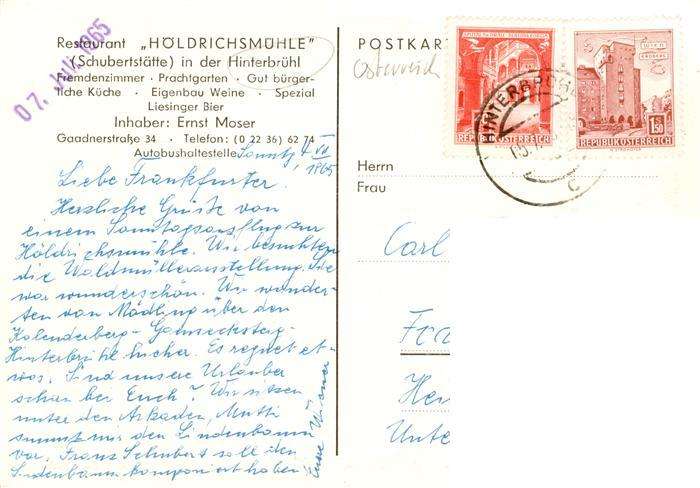 07. Juli 1965
Restaurant „HÖLDRICHSMÜHLE"
(Schubertstätte) in der Hinterbrühl
Fremdenzimmer · Prachtgarten · Gut bürger-
liche Küche · Eigenbau Weine · Spezial
Liesinger Bier
Inhaber: Ernst Moser
Gaadnerstraße 34 · Telefon: (0 22 36) 62 74
Autobushaltestelle
Sonntg, 4 VII
1965
Liebe Frankfurter.
Herzliche Grüße von
einem Sonntagsausflug zur
Höldrichsmühle. Wir besuchten
die Waldmüllerausstellung. Sie
war wunderschön. Wir wander-
ten von Mödling über den
Kalenderberg - Gamseckssteig -
Hinterbrühl hieher. Es regnet et-
was. Sind unsere Urlauber
schon bei Euch? Wir sitzen
unter den Arkaden, Mutti
summt mir den Lindenbaum
vor. Franz Schubert soll den
Lindenbaum komponiert haben
Eure Wiener
POSTKAR
Österreich
REPUBLIK ÖSTERREICH
1.50
REPUBLIK ÖSTERREICH
HINTERBRÜHL
05.
c
Herrn
Frau
Carl
Fra
Her
Unte